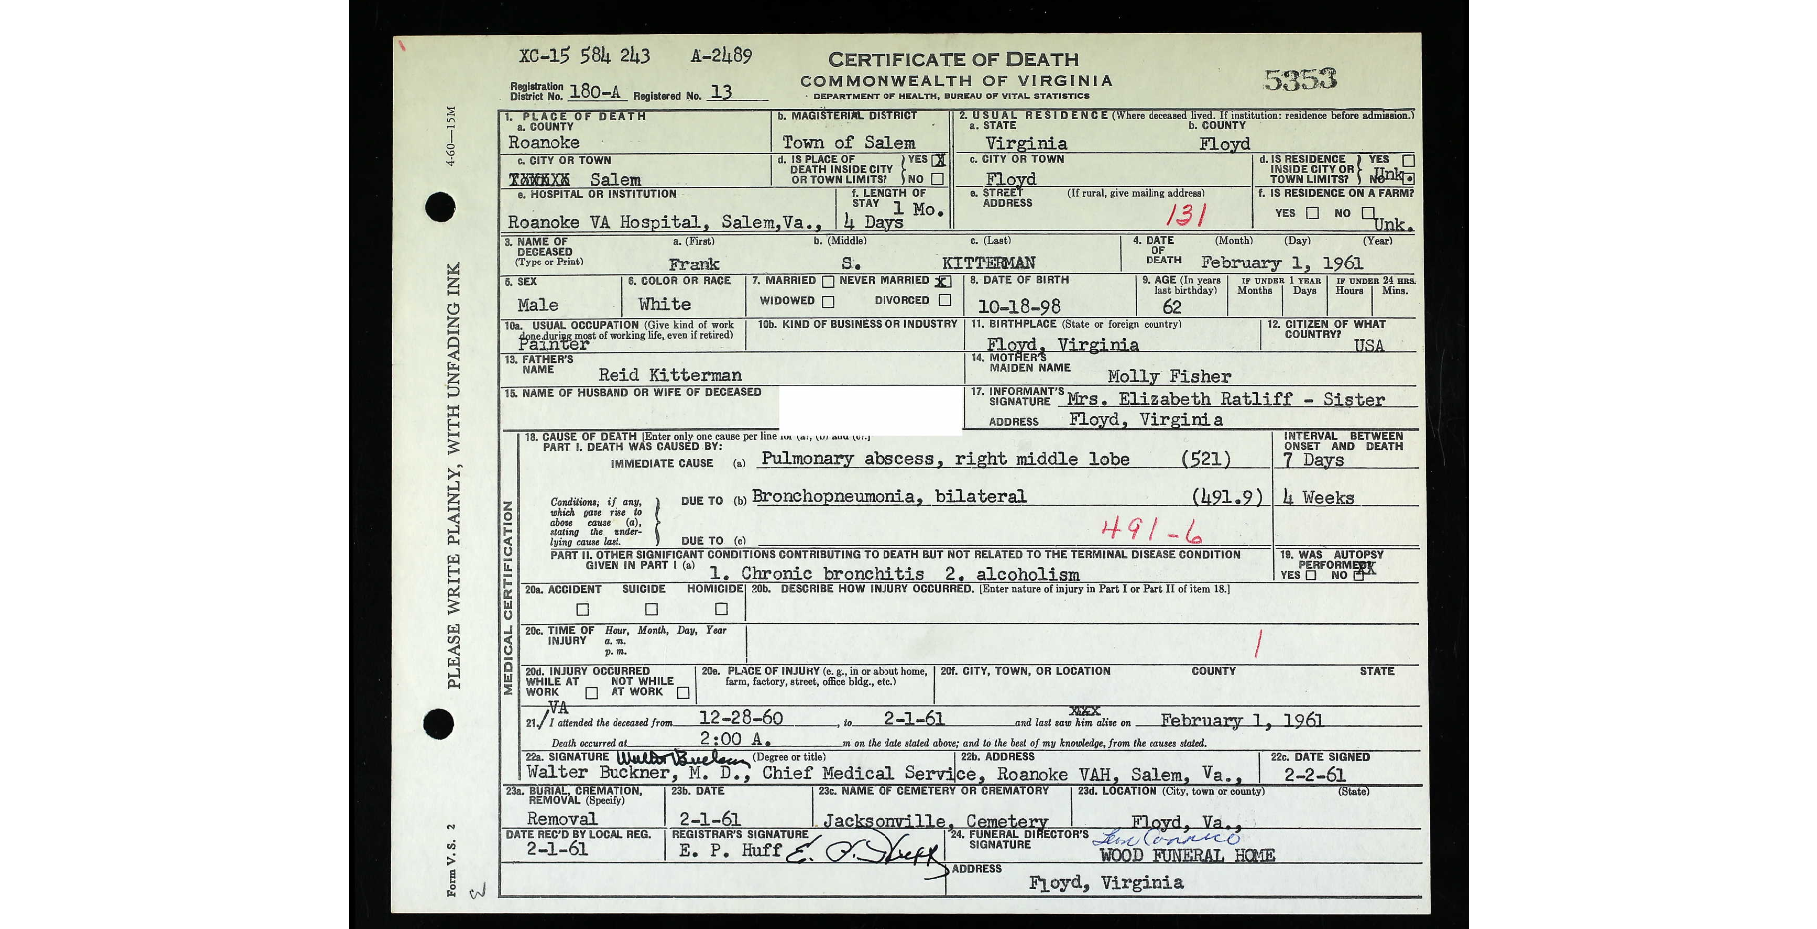 XC-15 584 243 A-2489
CERTIFICATE OF DEATH
COMMONWEALTH OF VIRGINIA
DEPARTMENT OF HEALTH, BUREAU OF VITAL STATISTICS
5353
Registration District No. 180-A Registered No. 13
4-60—15M
PLEASE WRITE PLAINLY, WITH UNFADING INK
Form V. S. 2
1. PLACE OF DEATH
a. COUNTY
Roanoke
b. MAGISTERIAL DISTRICT
Town of Salem
2. USUAL RESIDENCE (Where deceased lived. If institution: residence before admission.)
a. STATE
Virginia
b. COUNTY
Floyd
c. CITY OR TOWN
Salem
d. IS PLACE OF DEATH INSIDE CITY OR TOWN LIMITS? YES X NO
c. CITY OR TOWN
Floyd
d. IS RESIDENCE INSIDE CITY OR TOWN LIMITS? YES NO Unk.
e. HOSPITAL OR INSTITUTION
Roanoke VA Hospital, Salem,Va.,
f. LENGTH OF STAY 1 Mo.
4 Days
e. STREET ADDRESS (If rural, give mailing address)
131
f. IS RESIDENCE ON A FARM?
YES NO Unk.
3. NAME OF DECEASED (Type or Print)
a. (First) b. (Middle) c. (Last)
Frank S. KITTERMAN
4. DATE OF DEATH (Month) (Day) (Year)
February 1, 1961
5. SEX
Male
6. COLOR OR RACE
White
7. MARRIED NEVER MARRIED X
WIDOWED DIVORCED
8. DATE OF BIRTH
10-18-98
9. AGE (In years last birthday)
62
IF UNDER 1 YEAR
Months Days
IF UNDER 24 HRS.
Hours Mins.
10a. USUAL OCCUPATION (Give kind of work done during most of working life, even if retired)
Painter
10b. KIND OF BUSINESS OR INDUSTRY
11. BIRTHPLACE (State or foreign country)
Floyd, Virginia
12. CITIZEN OF WHAT COUNTRY?
USA
13. FATHER'S NAME
Reid Kitterman
14. MOTHER'S MAIDEN NAME
Molly Fisher
15. NAME OF HUSBAND OR WIFE OF DECEASED
17. INFORMANT'S SIGNATURE Mrs. Elizabeth Ratliff - Sister
ADDRESS Floyd, Virginia
MEDICAL CERTIFICATION
18. CAUSE OF DEATH [Enter only one cause per line for (a), (b) and (c).]
PART I. DEATH WAS CAUSED BY:
IMMEDIATE CAUSE (a) Pulmonary abscess, right middle lobe (521)
INTERVAL BETWEEN ONSET AND DEATH
7 Days
Conditions, if any, which gave rise to above cause (a), stating the underlying cause last.
DUE TO (b) Bronchopneumonia, bilateral (491.9)
4 Weeks
491-6
DUE TO (c)
PART II. OTHER SIGNIFICANT CONDITIONS CONTRIBUTING TO DEATH BUT NOT RELATED TO THE TERMINAL DISEASE CONDITION GIVEN IN PART I (a)
1. Chronic bronchitis 2. alcoholism
19. WAS AUTOPSY PERFORMED
YES NO XX
20a. ACCIDENT SUICIDE HOMICIDE
20b. DESCRIBE HOW INJURY OCCURRED. [Enter nature of injury in Part I or Part II of item 18.]
20c. TIME OF INJURY Hour, Month, Day, Year
a. m.
p. m.
20d. INJURY OCCURRED
WHILE AT WORK NOT WHILE AT WORK
20e. PLACE OF INJURY (e. g., in or about home, farm, factory, street, office bldg., etc.)
20f. CITY, TOWN, OR LOCATION COUNTY STATE
VA XXX
21. I attended the deceased from 12-28-60, to 2-1-61 and last saw him alive on February 1, 1961
Death occurred at 2:00 A. m on the date stated above; and to the best of my knowledge, from the causes stated.
22a. SIGNATURE Walter Buckner (Degree or title)
22b. ADDRESS
22c. DATE SIGNED
Walter Buckner, M. D., Chief Medical Service, Roanoke VAH, Salem, Va.,
2-2-61
23a. BURIAL, CREMATION, REMOVAL (Specify)
Removal
23b. DATE
2-1-61
23c. NAME OF CEMETERY OR CREMATORY
Jacksonville, Cemetery
23d. LOCATION (City, town or county) (State)
Floyd, Va.,
DATE REC'D BY LOCAL REG.
2-1-61
REGISTRAR'S SIGNATURE
E. P. Huff E. P. Huff
24. FUNERAL DIRECTOR'S SIGNATURE
WOOD FUNERAL HOME
ADDRESS
Floyd, Virginia